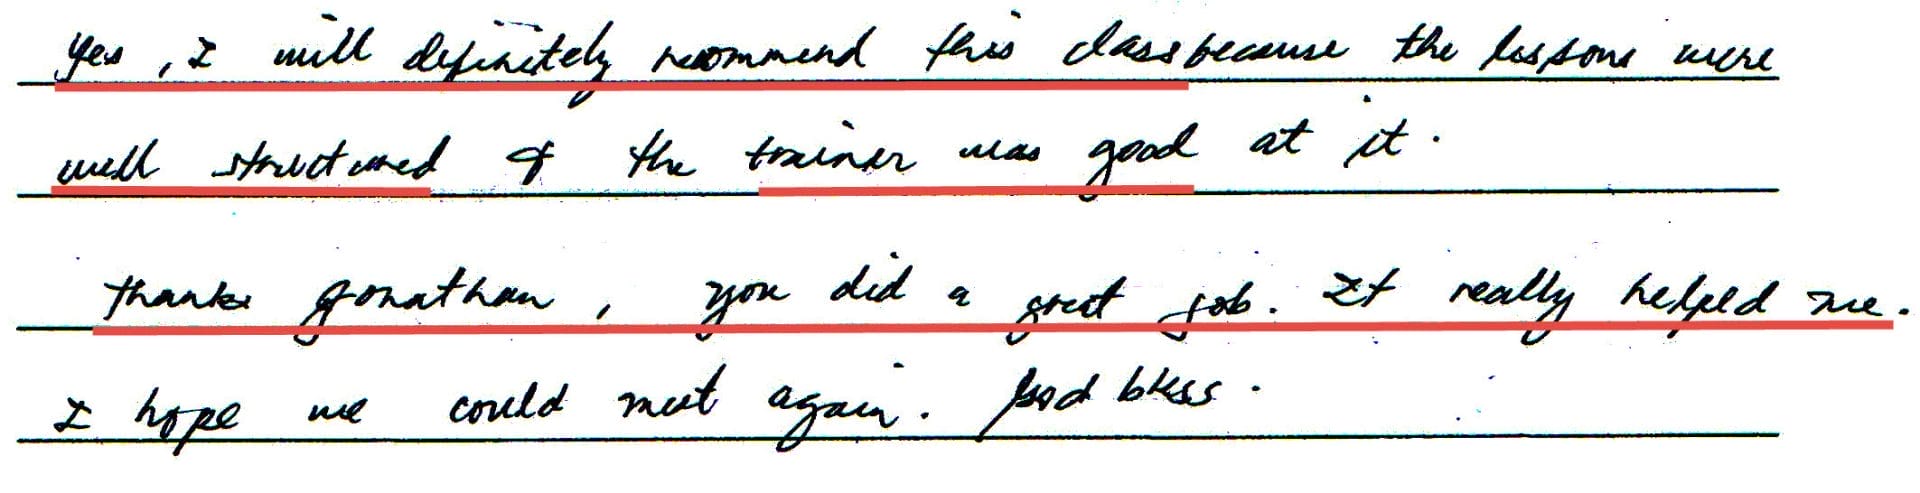 Yes, I will definitely recommend this class because the lessons were
well structured & the trainer was good at it.
Thanks Jonathan, you did a great job. It really helped me.
I hope we could meet again. God bless.